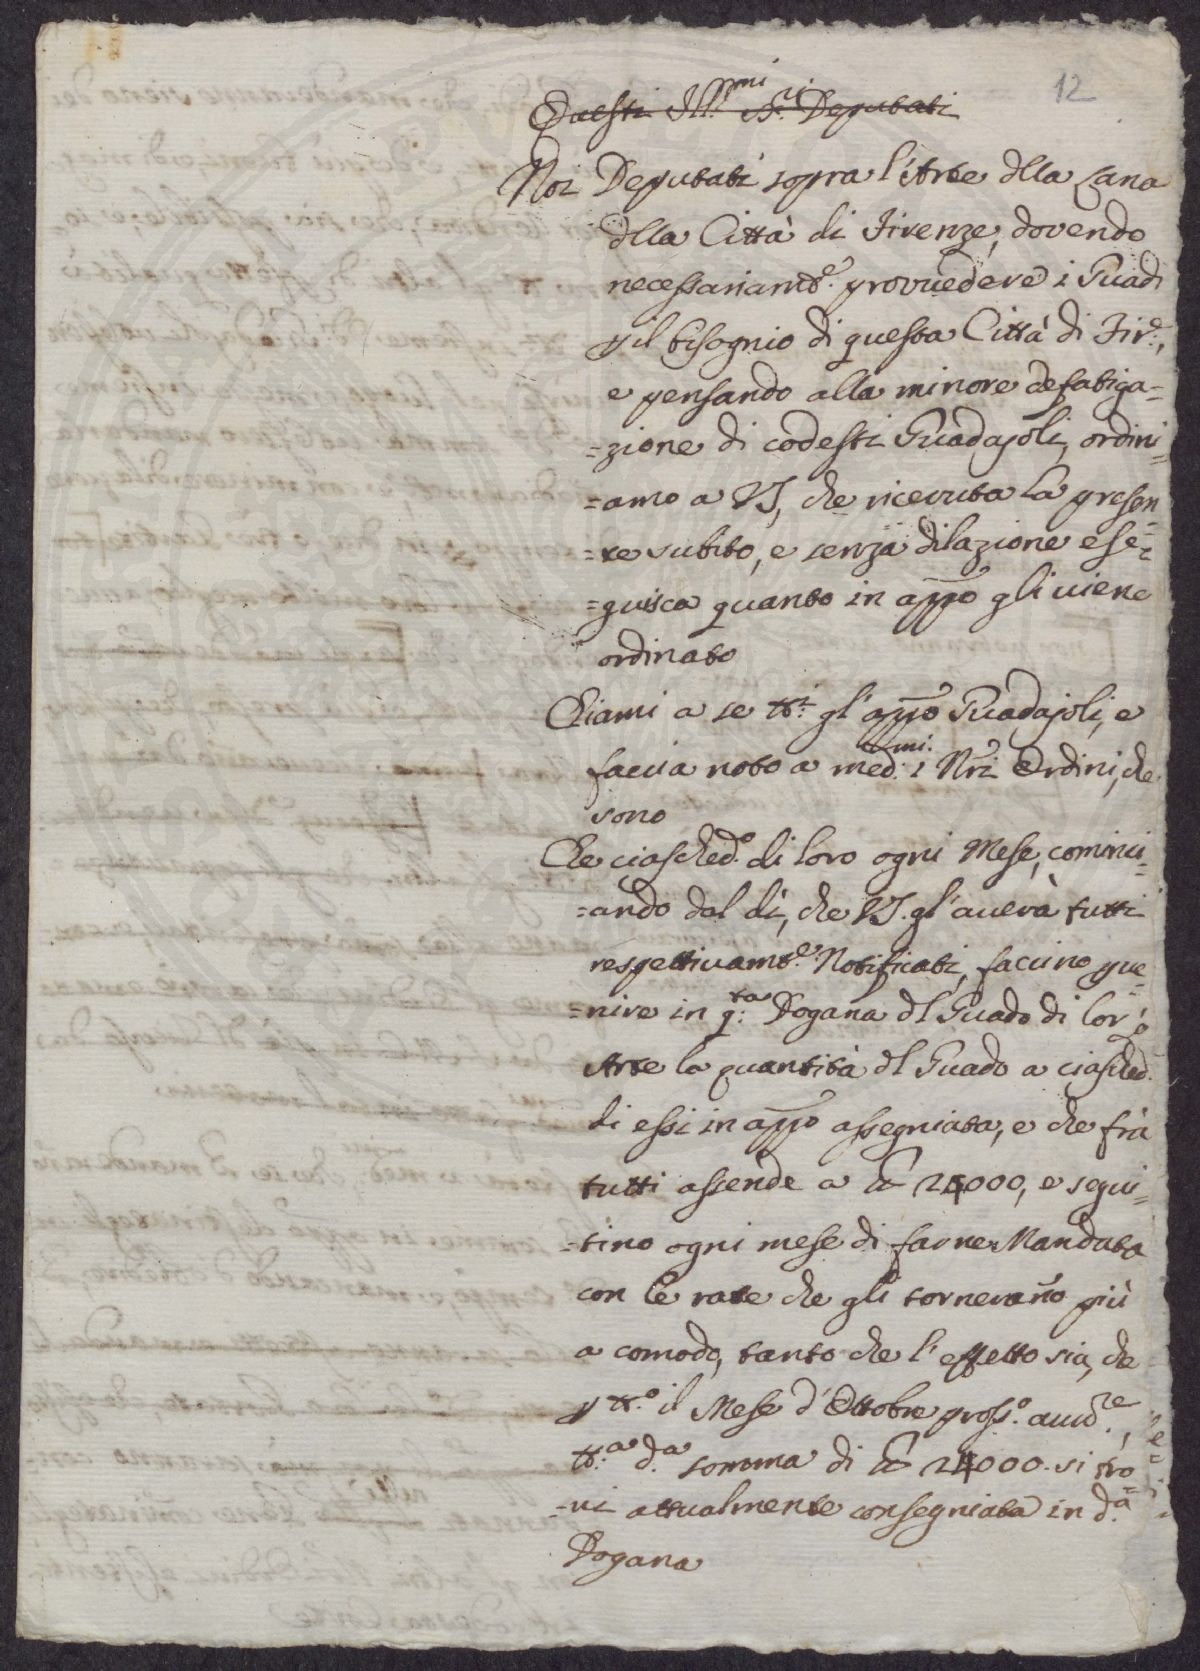 12
Questi Ill.mi SS.ri Deputati
Noi Deputati sopra l'Arte dlla Lana
dlla Città di Firenze, dovendo
necessariamte. provvedere i Guadi
p il bisognio di questa Città di Fire.,
e pensando alla minore defatiga=
=zione di codesti Guadajoli, ordini=
=amo a VS, che ricevuta la presen=
=te subito, e senza dilazione ese=
=guisca quanto in appo gli viene
ordinato
Chiami a se tti. gl'appo Guadajoli, e
faccia noto a med.mi i Nri Ordini, che
sono
Che ciasched.o di loro ogni Mese, cominci=
=ando dal dì, che VS. gl'averà tutti
respettivamte. Notificati, faccino pve=
=nire in q.ta Dogana dl Guado di lor'o
Arte la quantità dl Guado a ciasched.
di essi in appo assegniata, e che frà
tutti assende a lb 24000, e segui=
=tino ogni mese di farne Mandata
con le rate che gli tornerano più
a comodo, tanto che l'effetto sia, che
p tt.o il Mese d'Ottobre pross.o avvre.,
tt.a d.a somma di lb 24000. si tro=
=vi attualmente consegniata in d.a
Dogana